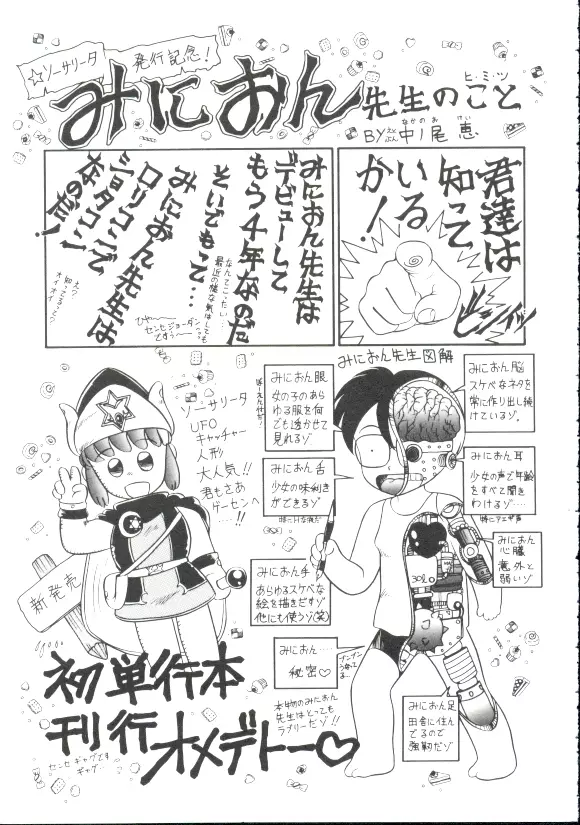 ☆ソーサリータ
発行記念!
みにおん先生のこと
ヒ・ミ・ツ
BY 中ノ尾 恵
なかのお けい
君達は
知って
いる
か!
ビシィッ
みにおん先生は
デビューして
もう4年なのだ
そいでもって…
みにおん先生は
ロリコンで
ショタコン
なのだ!
なんてこったい…
最近の様な気はしても
えっ
知ってるって?
オイオイ
ひゃ〜〜
センセジョーダン
ですぅ〜〜
ソーサリータ
UFO
キャッチャー
人形
大人気!!
君もさあ
ゲーセンへ
…!!
新発売
みにおん先生図解
みにおん眼
女の子のあら
ゆる服を何
でも透かせて
見れるゾ
みにおん舌
少女の味利き
ができるゾ
みにおん手
あらゆるスケベな
絵を描きだすゾ
他にも使うゾ(笑)
みにおん…
秘密♡
みにおん脳
スケベなネタを
常に作り出し続
けているゾ
みにおん耳
少女の声で年齢
をすべて聞き
わけるゾ…
特にアエギ声
みにおん
心臓
意外と
弱いゾ
みにおん足
田舎に住ん
でるので
強靭だゾ
本物のみにおん
先生はとっても
ラブリーだゾ!!
初単行本
刊行オメデトー♡
センセギャグです
ギャグ…